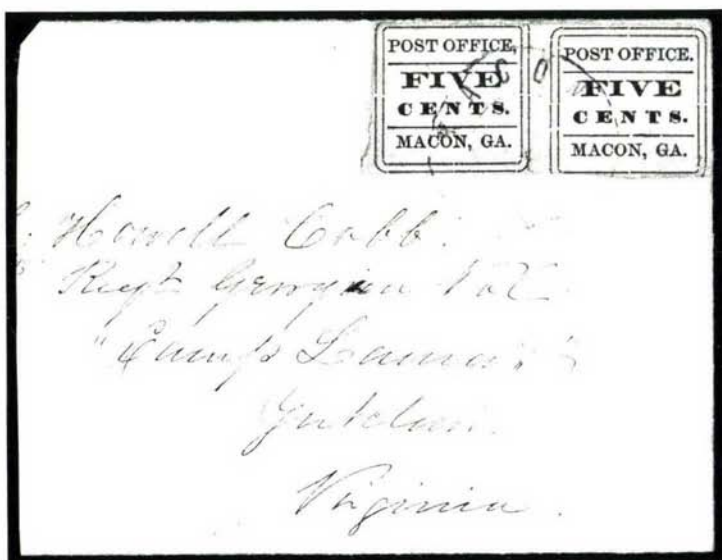 POST OFFICE,
FIVE
CENTS.
MACON, GA.
POST OFFICE.
FIVE
CENTS.
MACON, GA.
Howell Cobb.
Regt Georgia Vol
"Camp Lamar"
Virginia.